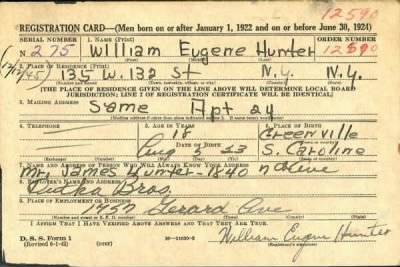 12590
REGISTRATION CARD—(Men born on or after January 1, 1922 and on or before June 30, 1924)
SERIAL NUMBER 1. NAME (Print) ORDER NUMBER
N 275 William Eugene Hunter 12590
(First) (Middle) (Last)
2. PLACE OF RESIDENCE (Print)
(12/12/45) 135 W. 132 St N.Y. N.Y.
[THE PLACE OF RESIDENCE GIVEN ON THE LINE ABOVE WILL DETERMINE LOCAL BOARD
JURISDICTION; LINE 2 OF REGISTRATION CERTIFICATE WILL BE IDENTICAL]
3. MAILING ADDRESS
Same Apt 24
4. TELEPHONE 5. AGE IN YEARS 6. PLACE OF BIRTH
18 Greenville
DATE OF BIRTH
Aug 23 S. Caroline
7. NAME AND ADDRESS OF PERSON WHO WILL ALWAYS KNOW YOUR ADDRESS
Mr. James Hunter - 1840
8. EMPLOYER'S NAME AND ADDRESS
Bros.
9. PLACE OF EMPLOYMENT OR BUSINESS
Gerard Ave
I AFFIRM THAT I HAVE VERIFIED ABOVE ANSWERS AND THAT THEY ARE TRUE.
D. S. S. Form 1
(Revised 6-1-42)
William Eugene Hunter